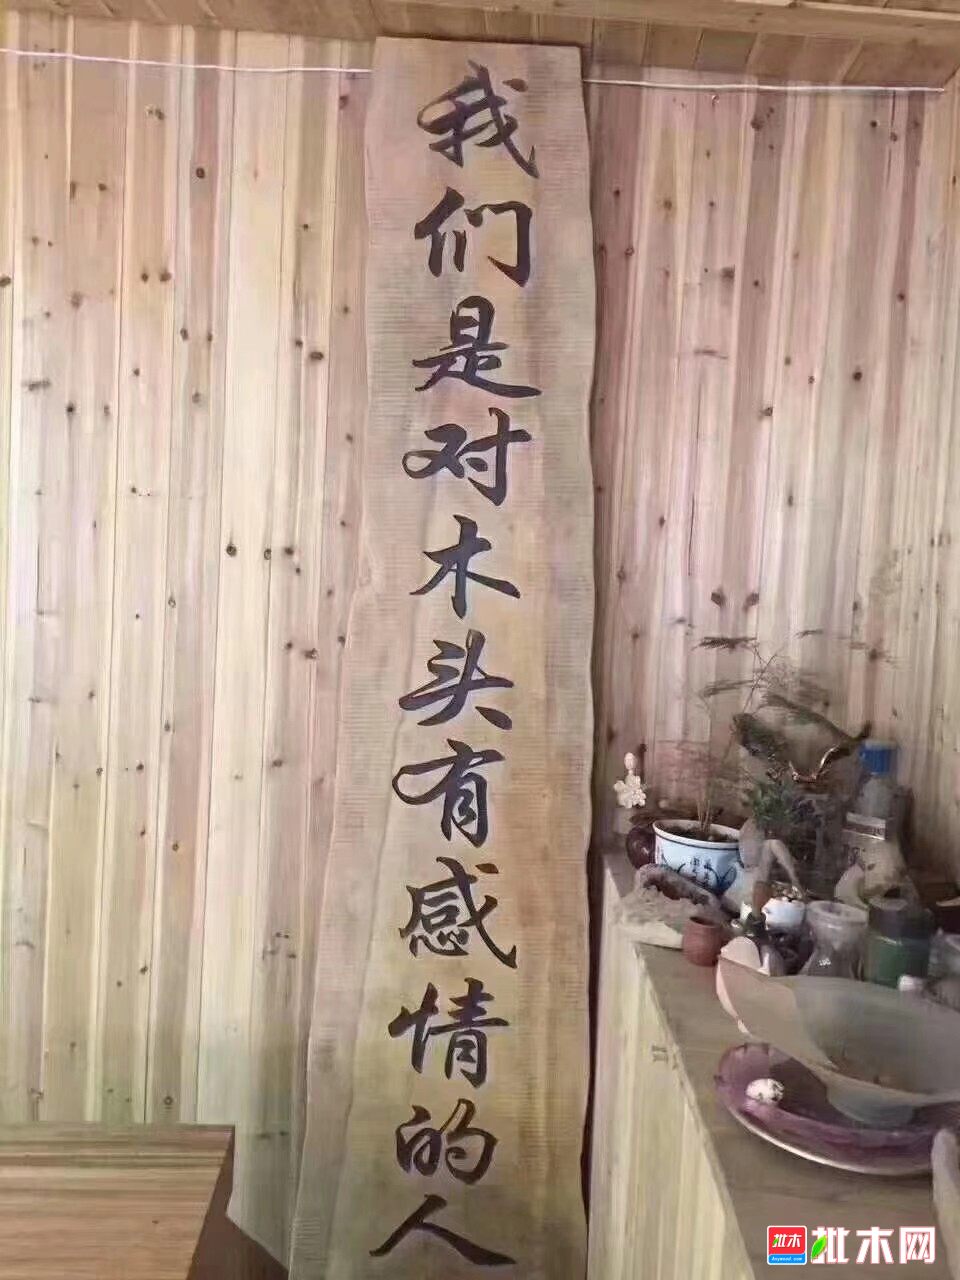 我们是对木头有感情的人
批木
批木网